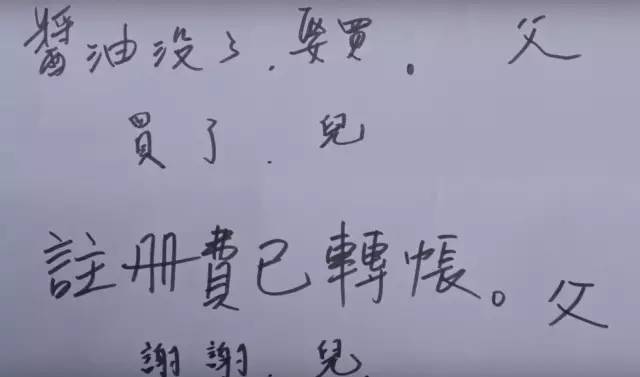 醬油没了.要買. 父
買了. 兒
註册費已轉帳。父
謝謝. 兒